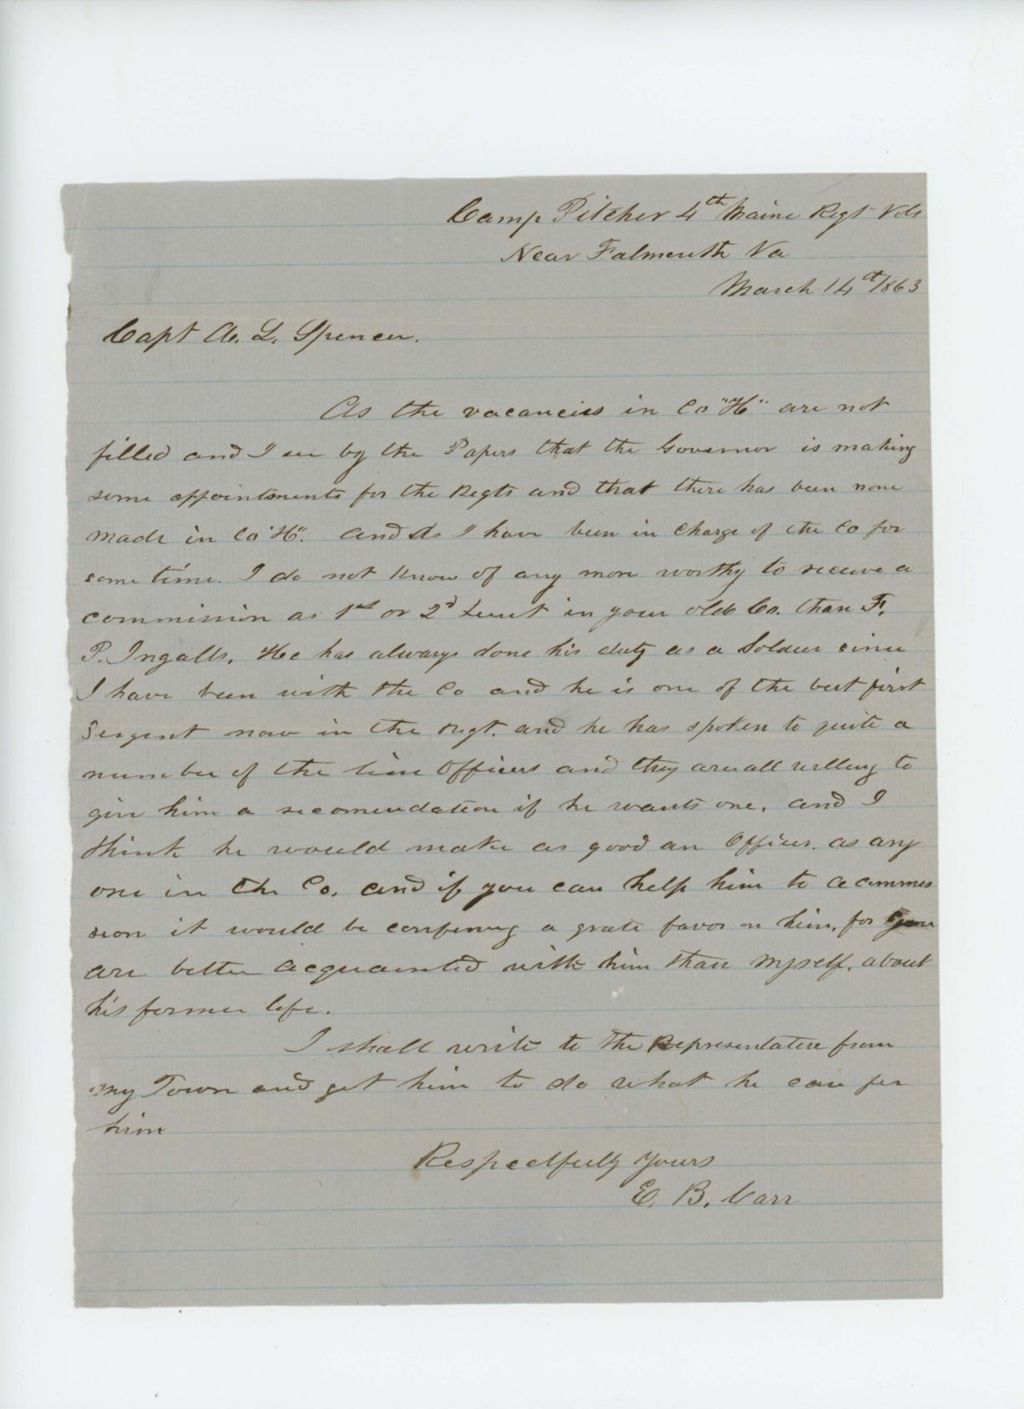 Camp Pitcher 4th Maine Regt Vols
Near Falmouth Va
March 14th/1863
Capt A. L. Spencer.
As the vacancies in Co "H" are not
filled and I see by the Papers that the Governor is making
some appointments for the Regts and that there has been none
made in Co "H". and As I have been in charge of the Co for
some time. I do not know of any more worthy to receive a
commission as 1st or 2d Lieut in your old Co. than F.
P. Ingalls. He has always done his duty as a Soldier since
I have been with the Co and he is one of the best first
Sergent now in the Regt. and he has spoken to quite a
number of the line Officers and they are all willing to
give him a recomendation if he wants one. and I
think he would make as good an Officer. as any
one in the Co. and if you can help him to a commis
sion it would be confering a grate favor on him. for you
are better acquainted with him than myself. about
his former life.
I shall write to the Representative from
my Town and get him to do what he can for
him
Respectfully Yours
E. B. Carr